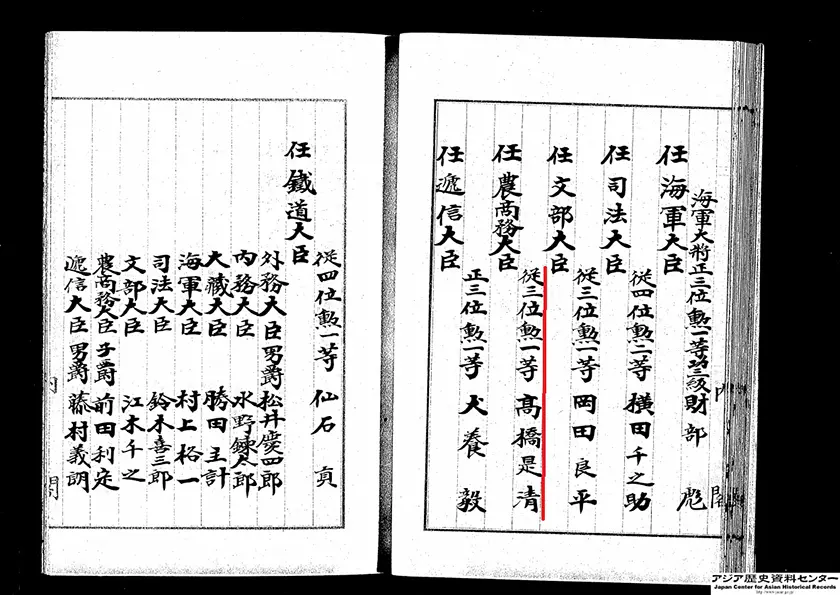 内閣
海軍大将正三位勲一等功三級財部 彪
任海軍大臣
從四位勲二等 横田千之助
任司法大臣
從三位勲一等 岡田良平
任文部大臣
從三位勲一等 高橋是清
任農商務大臣
正三位勲一等 犬養 毅
任遞信大臣
從四位勲一等 仙石 貢
任鐵道大臣
外務大臣男爵 松井慶四郎
内務大臣 水野錬太郎
大藏大臣 勝田主計
海軍大臣 村上格一
司法大臣 鈴木喜三郎
文部大臣 江木千之
農商務大臣子爵 前田利定
遞信大臣男爵 藤村義朗
アジア歴史資料センター
Japan Center for Asian Historical Records
http://www.jacar.go.jp/